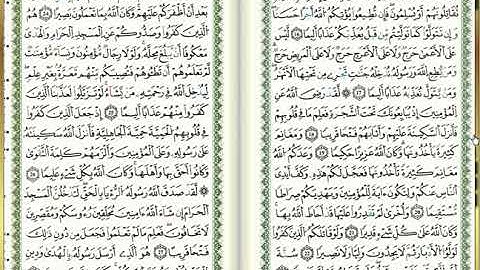 تُقَاتِلُونَهُمْ أَوْ يُسْلِمُونَ فَإِن تُطِيعُوا۟ يُؤْتِكُمُ ٱللَّهُ أَجْرًا حَسَنًا
وَإِن تَتَوَلَّوْا۟ كَمَا تَوَلَّيْتُم مِّن قَبْلُ يُعَذِّبْكُمْ عَذَابًا أَلِيمًا ١٦ لَّيْسَ
عَلَى ٱلْأَعْمَىٰ حَرَجٌ وَلَا عَلَى ٱلْأَعْرَجِ حَرَجٌ وَلَا عَلَى ٱلْمَرِيضِ حَرَجٌ
وَمَن يُطِعِ ٱللَّهَ وَرَسُولَهُۥ يُدْخِلْهُ جَنَّٰتٍ تَجْرِى مِن تَحْتِهَا ٱلْأَنْهَٰرُ
وَمَن يَتَوَلَّ يُعَذِّبْهُ عَذَابًا أَلِيمًا ١٧ لَّقَدْ رَضِىَ ٱللَّهُ عَنِ
ٱلْمُؤْمِنِينَ إِذْ يُبَايِعُونَكَ تَحْتَ ٱلشَّجَرَةِ فَعَلِمَ مَا فِى قُلُوبِهِمْ
فَأَنزَلَ ٱلسَّكِينَةَ عَلَيْهِمْ وَأَثَٰبَهُمْ فَتْحًا قَرِيبًا ١٨ وَمَغَانِمَ
كَثِيرَةً يَأْخُذُونَهَا وَكَانَ ٱللَّهُ عَزِيزًا حَكِيمًا ١٩ وَعَدَكُمُ ٱللَّهُ
مَغَانِمَ كَثِيرَةً تَأْخُذُونَهَا فَعَجَّلَ لَكُمْ هَٰذِهِۦ وَكَفَّ أَيْدِىَ
ٱلنَّاسِ عَنكُمْ وَلِتَكُونَ ءَايَةً لِّلْمُؤْمِنِينَ وَيَهْدِيَكُمْ صِرَٰطًا
مُّسْتَقِيمًا ٢٠ وَأُخْرَىٰ لَمْ تَقْدِرُوا۟ عَلَيْهَا قَدْ أَحَاطَ ٱللَّهُ بِهَا
وَكَانَ ٱللَّهُ عَلَىٰ كُلِّ شَىْءٍ قَدِيرًا ٢١ وَلَوْ قَٰتَلَكُمُ ٱلَّذِينَ كَفَرُوا۟
لَوَلَّوُا۟ ٱلْأَدْبَٰرَ ثُمَّ لَا يَجِدُونَ وَلِيًّا وَلَا نَصِيرًا ٢٢ سُنَّةَ
بَعْدِ أَنْ أَظْفَرَكُمْ عَلَيْهِمْ وَكَانَ ٱللَّهُ بِمَا تَعْمَلُونَ بَصِيرًا ٢٤ هُمُ
ٱلَّذِينَ كَفَرُوا۟ وَصَدُّوكُمْ عَنِ ٱلْمَسْجِدِ ٱلْحَرَامِ وَٱلْهَدْىَ
مَعْكُوفًا أَن يَبْلُغَ مَحِلَّهُۥ وَلَوْلَا رِجَالٌ مُّؤْمِنُونَ وَنِسَآءٌ مُّؤْمِنَٰتٌ
لَّمْ تَعْلَمُوهُمْ أَن تَطَـُٔوهُمْ فَتُصِيبَكُم مِّنْهُم مَّعَرَّةٌۢ بِغَيْرِ عِلْمٍ
لِّيُدْخِلَ ٱللَّهُ فِى رَحْمَتِهِۦ مَن يَشَآءُ لَوْ تَزَيَّلُوا۟ لَعَذَّبْنَا ٱلَّذِينَ
كَفَرُوا۟ مِنْهُمْ عَذَابًا أَلِيمًا ٢٥ إِذْ جَعَلَ ٱلَّذِينَ كَفَرُوا۟
فِى قُلُوبِهِمُ ٱلْحَمِيَّةَ حَمِيَّةَ ٱلْجَٰهِلِيَّةِ فَأَنزَلَ ٱللَّهُ سَكِينَتَهُۥ
عَلَىٰ رَسُولِهِۦ وَعَلَى ٱلْمُؤْمِنِينَ وَأَلْزَمَهُمْ كَلِمَةَ ٱلتَّقْوَىٰ
وَكَانُوٓا۟ أَحَقَّ بِهَا وَأَهْلَهَا وَكَانَ ٱللَّهُ بِكُلِّ شَىْءٍ عَلِيمًا ٢٦
لَّقَدْ صَدَقَ ٱللَّهُ رَسُولَهُ ٱلرُّءْيَا بِٱلْحَقِّ لَتَدْخُلُنَّ ٱلْمَسْجِدَ
ٱلْحَرَامَ إِن شَآءَ ٱللَّهُ ءَامِنِينَ مُحَلِّقِينَ رُءُوسَكُمْ وَمُقَصِّرِينَ
لَا تَخَافُونَ فَعَلِمَ مَا لَمْ تَعْلَمُوا۟ فَجَعَلَ مِن دُونِ ذَٰلِكَ
فَتْحًا قَرِيبًا ٢٧ هُوَ ٱلَّذِىٓ أَرْسَلَ رَسُولَهُۥ بِٱلْهُدَىٰ وَدِينِ